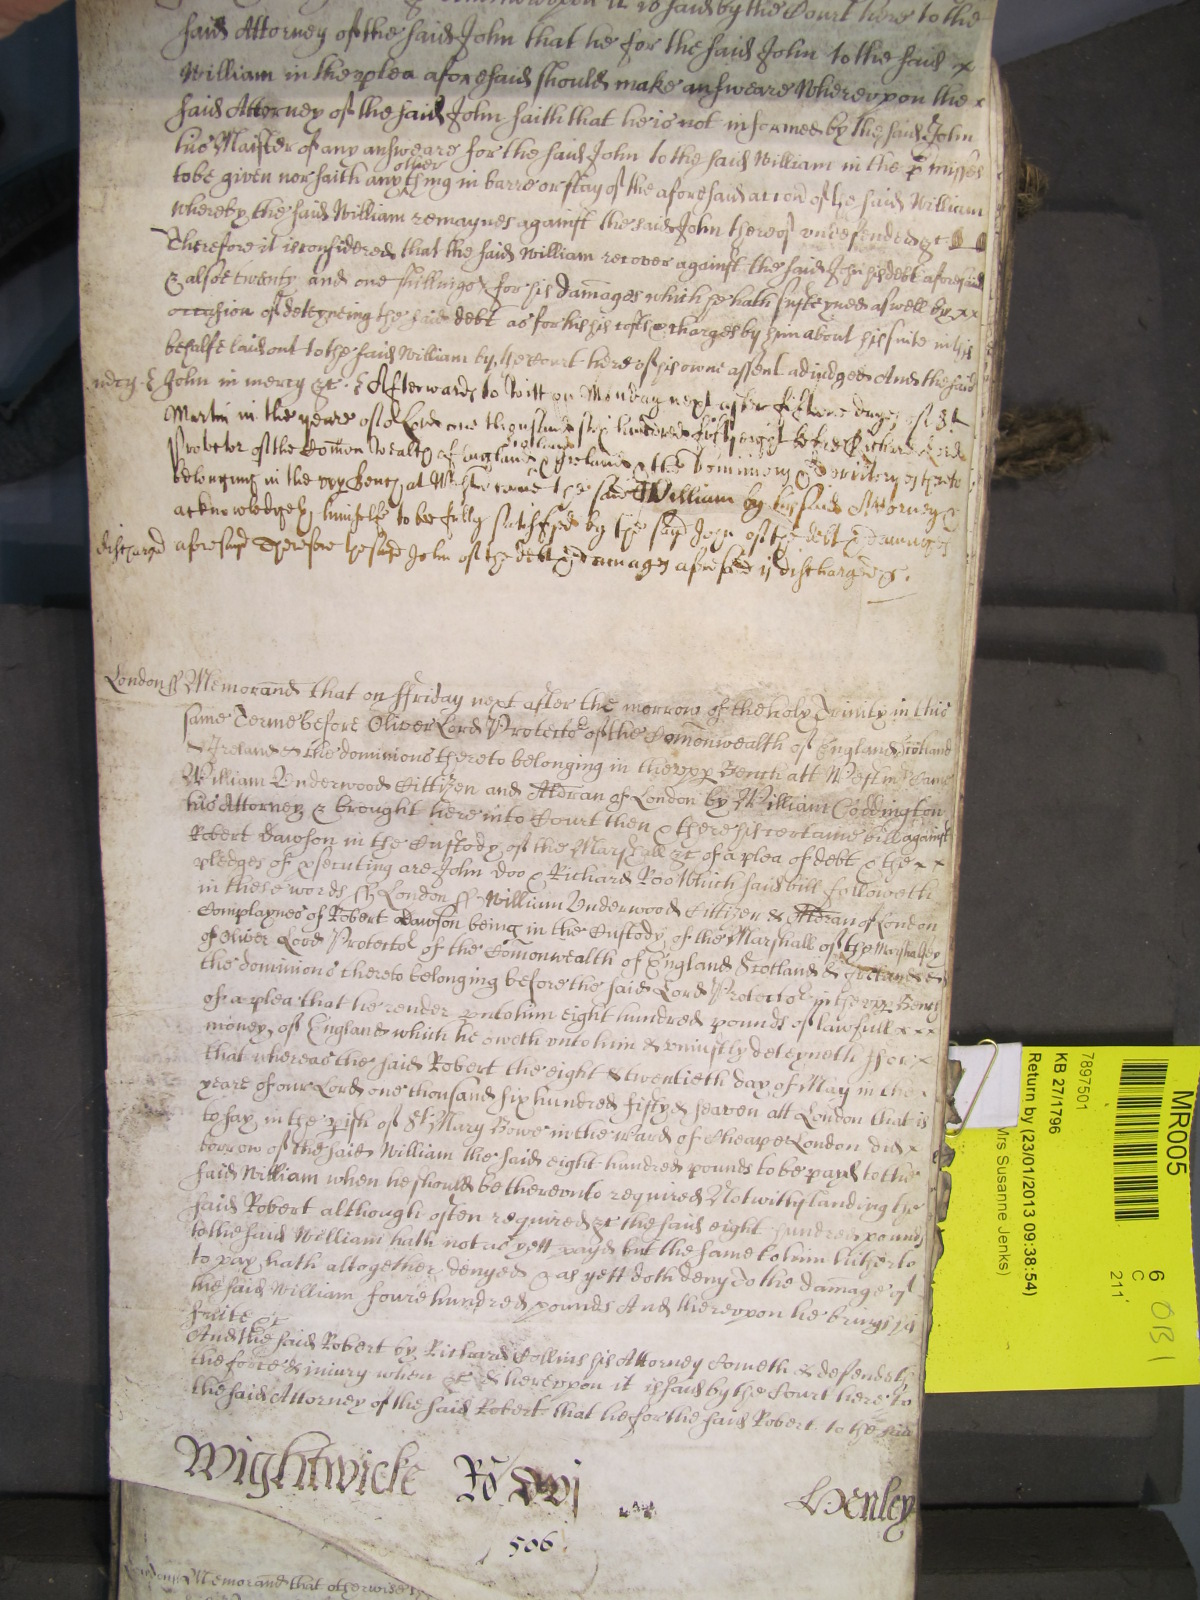 it is said by the Court here to the
said Attorney of the said John that he for the said John to the said x
William in the plea aforesaid should make answeare Whereupon the x
said Attorney of the said John saith that he is not informed by the said John
his Maister of any answeare for the said John to the said William in the p'misses
to be given nor saith any other thing in barre or stay of the aforesaid accon of the said William
whereby the said William remaynes against the said John thereof undefended &c
Therefore it is considered that the said William recover against the said John his debt aforesaid
& alsoe twenty and one shillings for his damages which he hath susteyned aswell by xx
occasion of deteyneing the said debt as for his costs & charges by him about his suite in this
behalfe laid out to the said William by the Court here of his owne assent adiudged And the said
mercy John in mercy &c Afterwards to witt on Monday next after fifteene dayes of St
Martin in the yeare of o Lord one thousand six hundred fifty eight before Richard Lord
Protector of the Comon Wealth of England Scotland & Ireland & the Dominions & Territoryes thereto
belonging in the upp Bench at Westm' came the said William by his said Attorney &
acknowledgeth himselfe to be fully satisfyed by the said John of the debt & damages
discharged aforesaid Therefore the said John of the debt & damages aforesaid is discharged &c.
London ss Memorand that on ffriday next after the morrow of the holy Trinity in this
same Terme before Oliver Lord Protector of the Comonwealth of England Scotland
& Ireland & the dominions thereto belonging in the upp Bench att Westm' Came
William Underwood Cittizen and Aldran of London by William Coddington
his Attorney & brought here into Court then & there his certaine bill against
Robert Dawson in the Custody of the Marshall &c of a plea of debt & the x x
pledges of p'secuting are John Doo & Richard Roo Which said bill followeth
in these words ss London ss William Underwood Cittizen & Aldran of London
Complaynes of Robert Dawson being in the Custody of the Marshall of the Marshalsey
of Oliver Lord Protector of the Comonwealth of England Scotland & Ireland &
the dominions thereto belonging before the said Lord Protector in the upp Bench
of a plea that he render unto him eight hundred pounds of lawfull x x x
money of England which he oweth unto him & uniustly deteyneth For x
that whereas the said Robert the eight & twentieth day of May in the x
yeare of our Lord one thousand six hundred fifty & seaven att London that is
to say in the p'ish of St Mary Bowe in the ward of Cheape London did x
borrow of the said William the said eight hundred pounds to be payd to the
said William when he should be thereunto required Notwithstanding the
said Robert although often required &c the said eight hundred pounds
to the said William hath not as yett payd but the same to him hitherto
to pay hath altogether denyed & as yett doth deny To the damage of
the said William foure hundred pounds And thereupon he brings his
suite &c
And the said Robert by Richard Collins his Attorney Cometh & defendeth
the force & iniury when &c & hereupon it is said by the Court here to
the said Attorney of the said Robert that he for the said Robert to the said
Wightwicke Ro xvj Henley
506
London Memorand that otherwise
MR005
6
C
211'
OB1
7897501
KB 27/1796
Return by (23/01/2013 09:38:54)
Mrs Susanne Jenks)